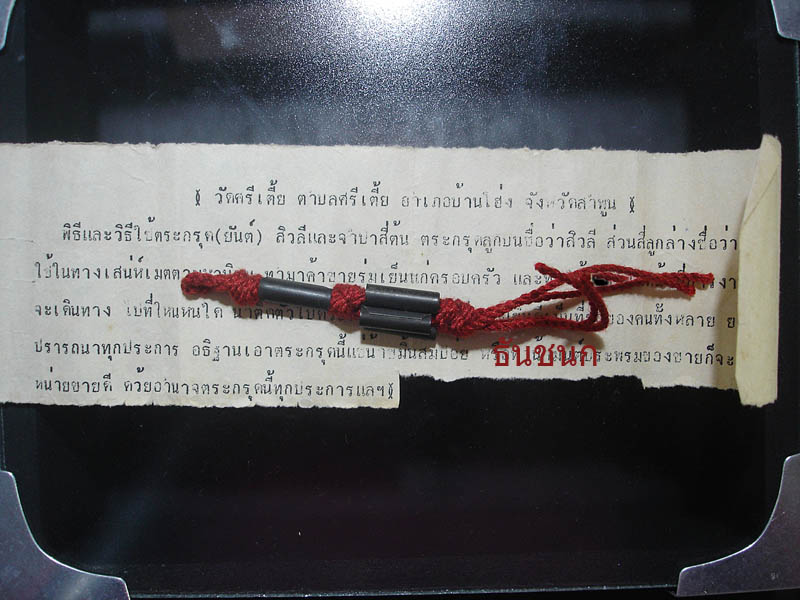 วัดศรีเตี้ย ตำบลศรีเตี้ย อำเภอบ้านโฮ่ง จังหวัดลำพูน
พิธีและวิธีใช้ตระกรุด(ยันต์) สิวลีและจำปาสี่ต้น ตระกรุดลูกบนชื่อว่าสิวลี ส่วนสี่ลูกล่างชื่อว่า
ใช้ในทางเสน่ห์เมตตามหานิยม ทำมาค้าขายร่มเย็นแก่ครอบครัว
จะเดินทาง ไปที่ไหนหนใด นำติดตัวไปด้วย ของคนทั้งหลาย
ปรารถนาทุกประการ อธิฐานเอาตระกรุดนี้แช่น้ำขมิ้นส้มป่อย ประพรมของขายก็จะ
ธันชนก
หน่ายขายดี ด้วยอำนาจตระกรุดนี้ทุกประการแลฯ